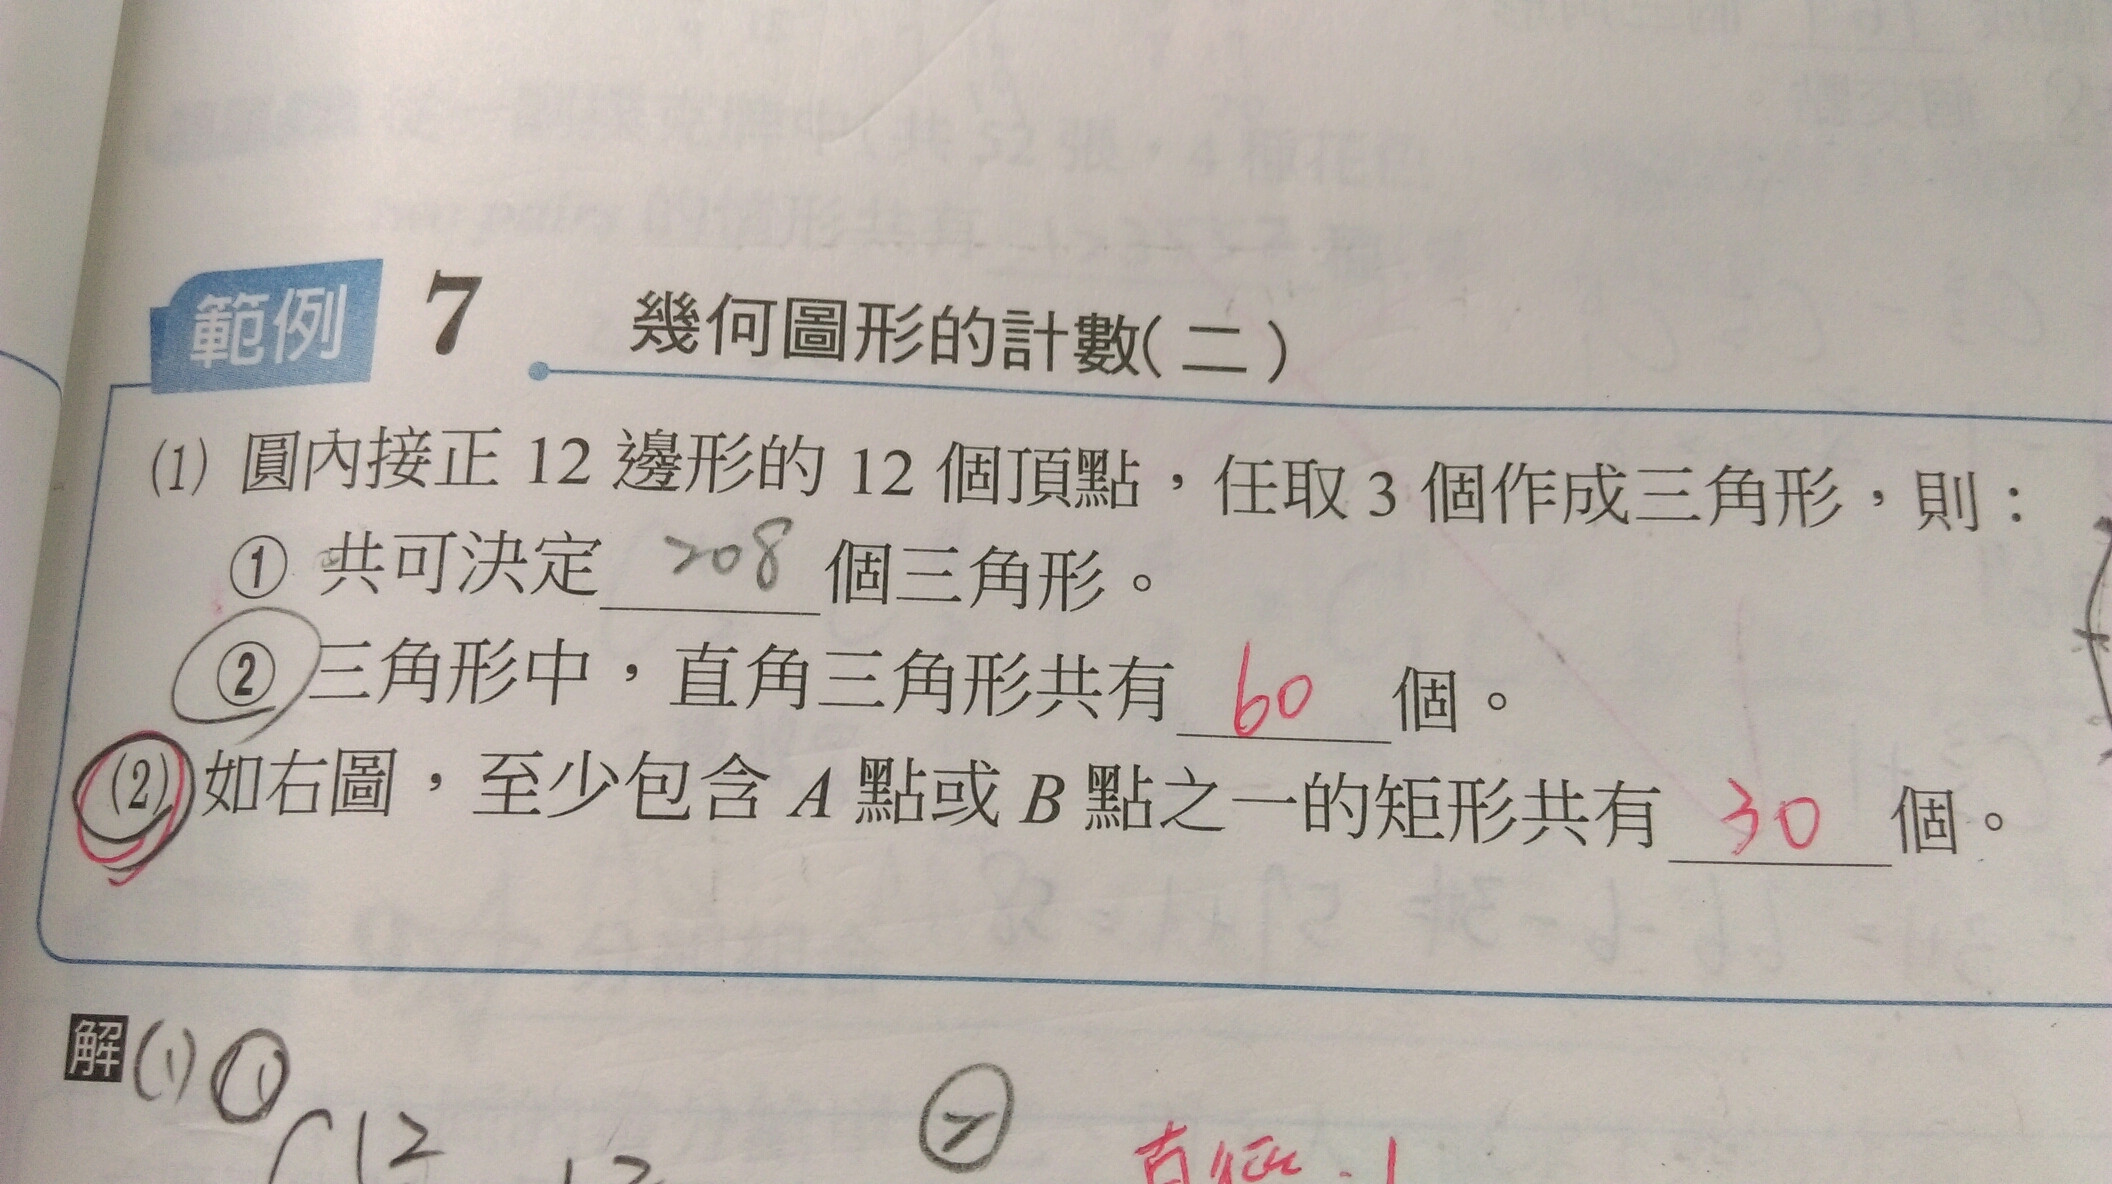 範例 7 幾何圖形的計數(二)
(1) 圓內接正 12 邊形的 12 個頂點，任取 3 個作成三角形，則：
① 共可決定 208 個三角形。
② 三角形中，直角三角形共有 60 個。
(2) 如右圖，至少包含 A 點或 B 點之一的矩形共有 30 個。
解 (1) ① ②
C12 直徑